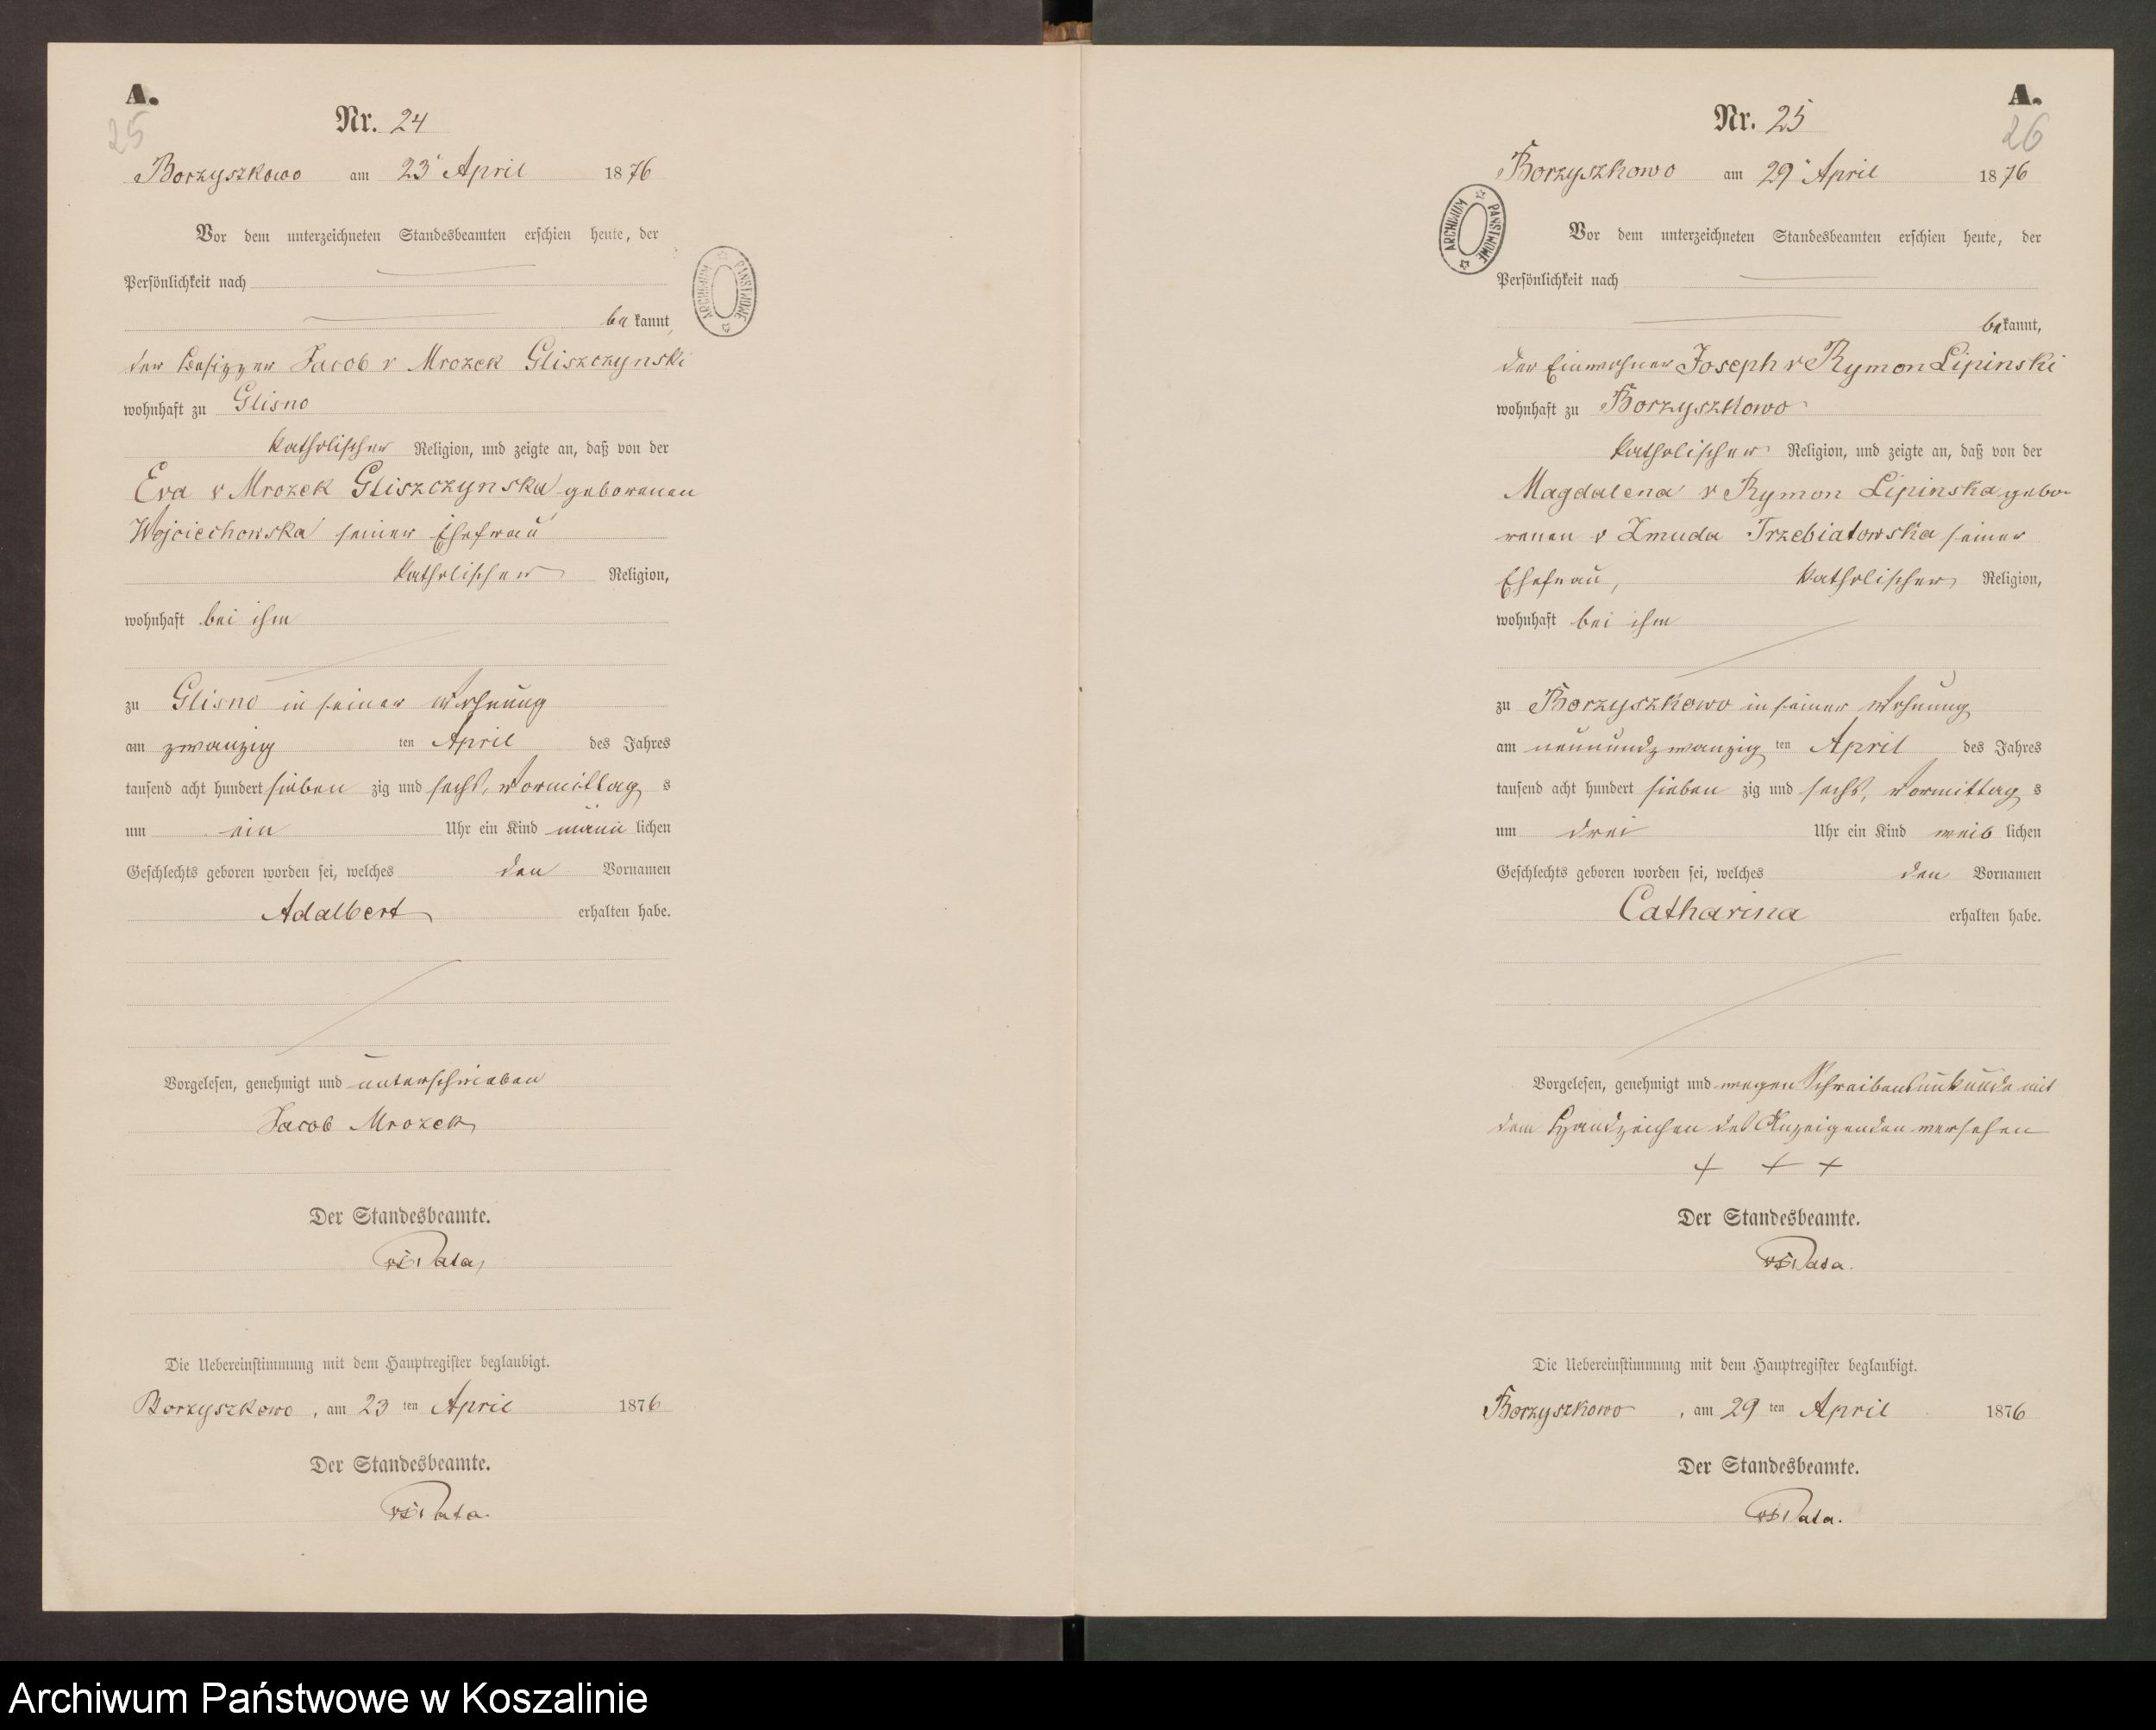 A.
25
Nr. 24
Borzyszkowo am 23t April 1876
Vor dem unterzeichneten Standesbeamten erschien heute, der
Persönlichkeit nach
bekannt,
der Besitzer Jacob v Mrozek Gliszczynski
wohnhaft zu Glisno
katholischer Religion, und zeigte an, daß von der
Eva v Mrozek Gliszczynska geborenen
Wojciechowska seiner Ehefrau
katholischer Religion,
wohnhaft bei ihm
zu Glisno in seiner Wohnung
am zwanzig ten April des Jahres
tausend acht hundert sieben zig und sechs, Vormittag s
um ein Uhr ein Kind männ lichen
Geschlechts geboren worden sei, welches den Vornamen
Adalbert erhalten habe.
Vorgelesen, genehmigt und unterschrieben
Jacob Mrozek
Der Standesbeamte.
Die Uebereinstimmung mit dem Hauptregister beglaubigt.
Borzyszkowo, am 23 ten April 1876
Der Standesbeamte.
ARCHIWUM PAŃSTWOWE
A.
26
Nr. 25
Borzyszkowo am 29t April 1876
Vor dem unterzeichneten Standesbeamten erschien heute, der
Persönlichkeit nach
bekannt,
der Einwohner Joseph v Rymon Lipinski
wohnhaft zu Borzyszkowo
katholischer Religion, und zeigte an, daß von der
Magdalena v Rymon Lipinska gebo-
renen v Zmuda Trzebiatowska seiner
Ehefrau, katholischer Religion,
wohnhaft bei ihm
zu Borzyszkowo in seiner Wohnung
am neunundzwanzig ten April des Jahres
tausend acht hundert sieben zig und sechs, Vormittag s
um drei Uhr ein Kind weib lichen
Geschlechts geboren worden sei, welches den Vornamen
Catharina erhalten habe.
Vorgelesen, genehmigt und wegen Schreibensunkunde mit
dem Handzeichen des Anzeigenden versehen
+ + +
Der Standesbeamte.
Die Uebereinstimmung mit dem Hauptregister beglaubigt.
Borzyszkowo, am 29 ten April 1876
Der Standesbeamte.
ARCHIWUM PAŃSTWOWE
Archiwum Państwowe w Koszalinie